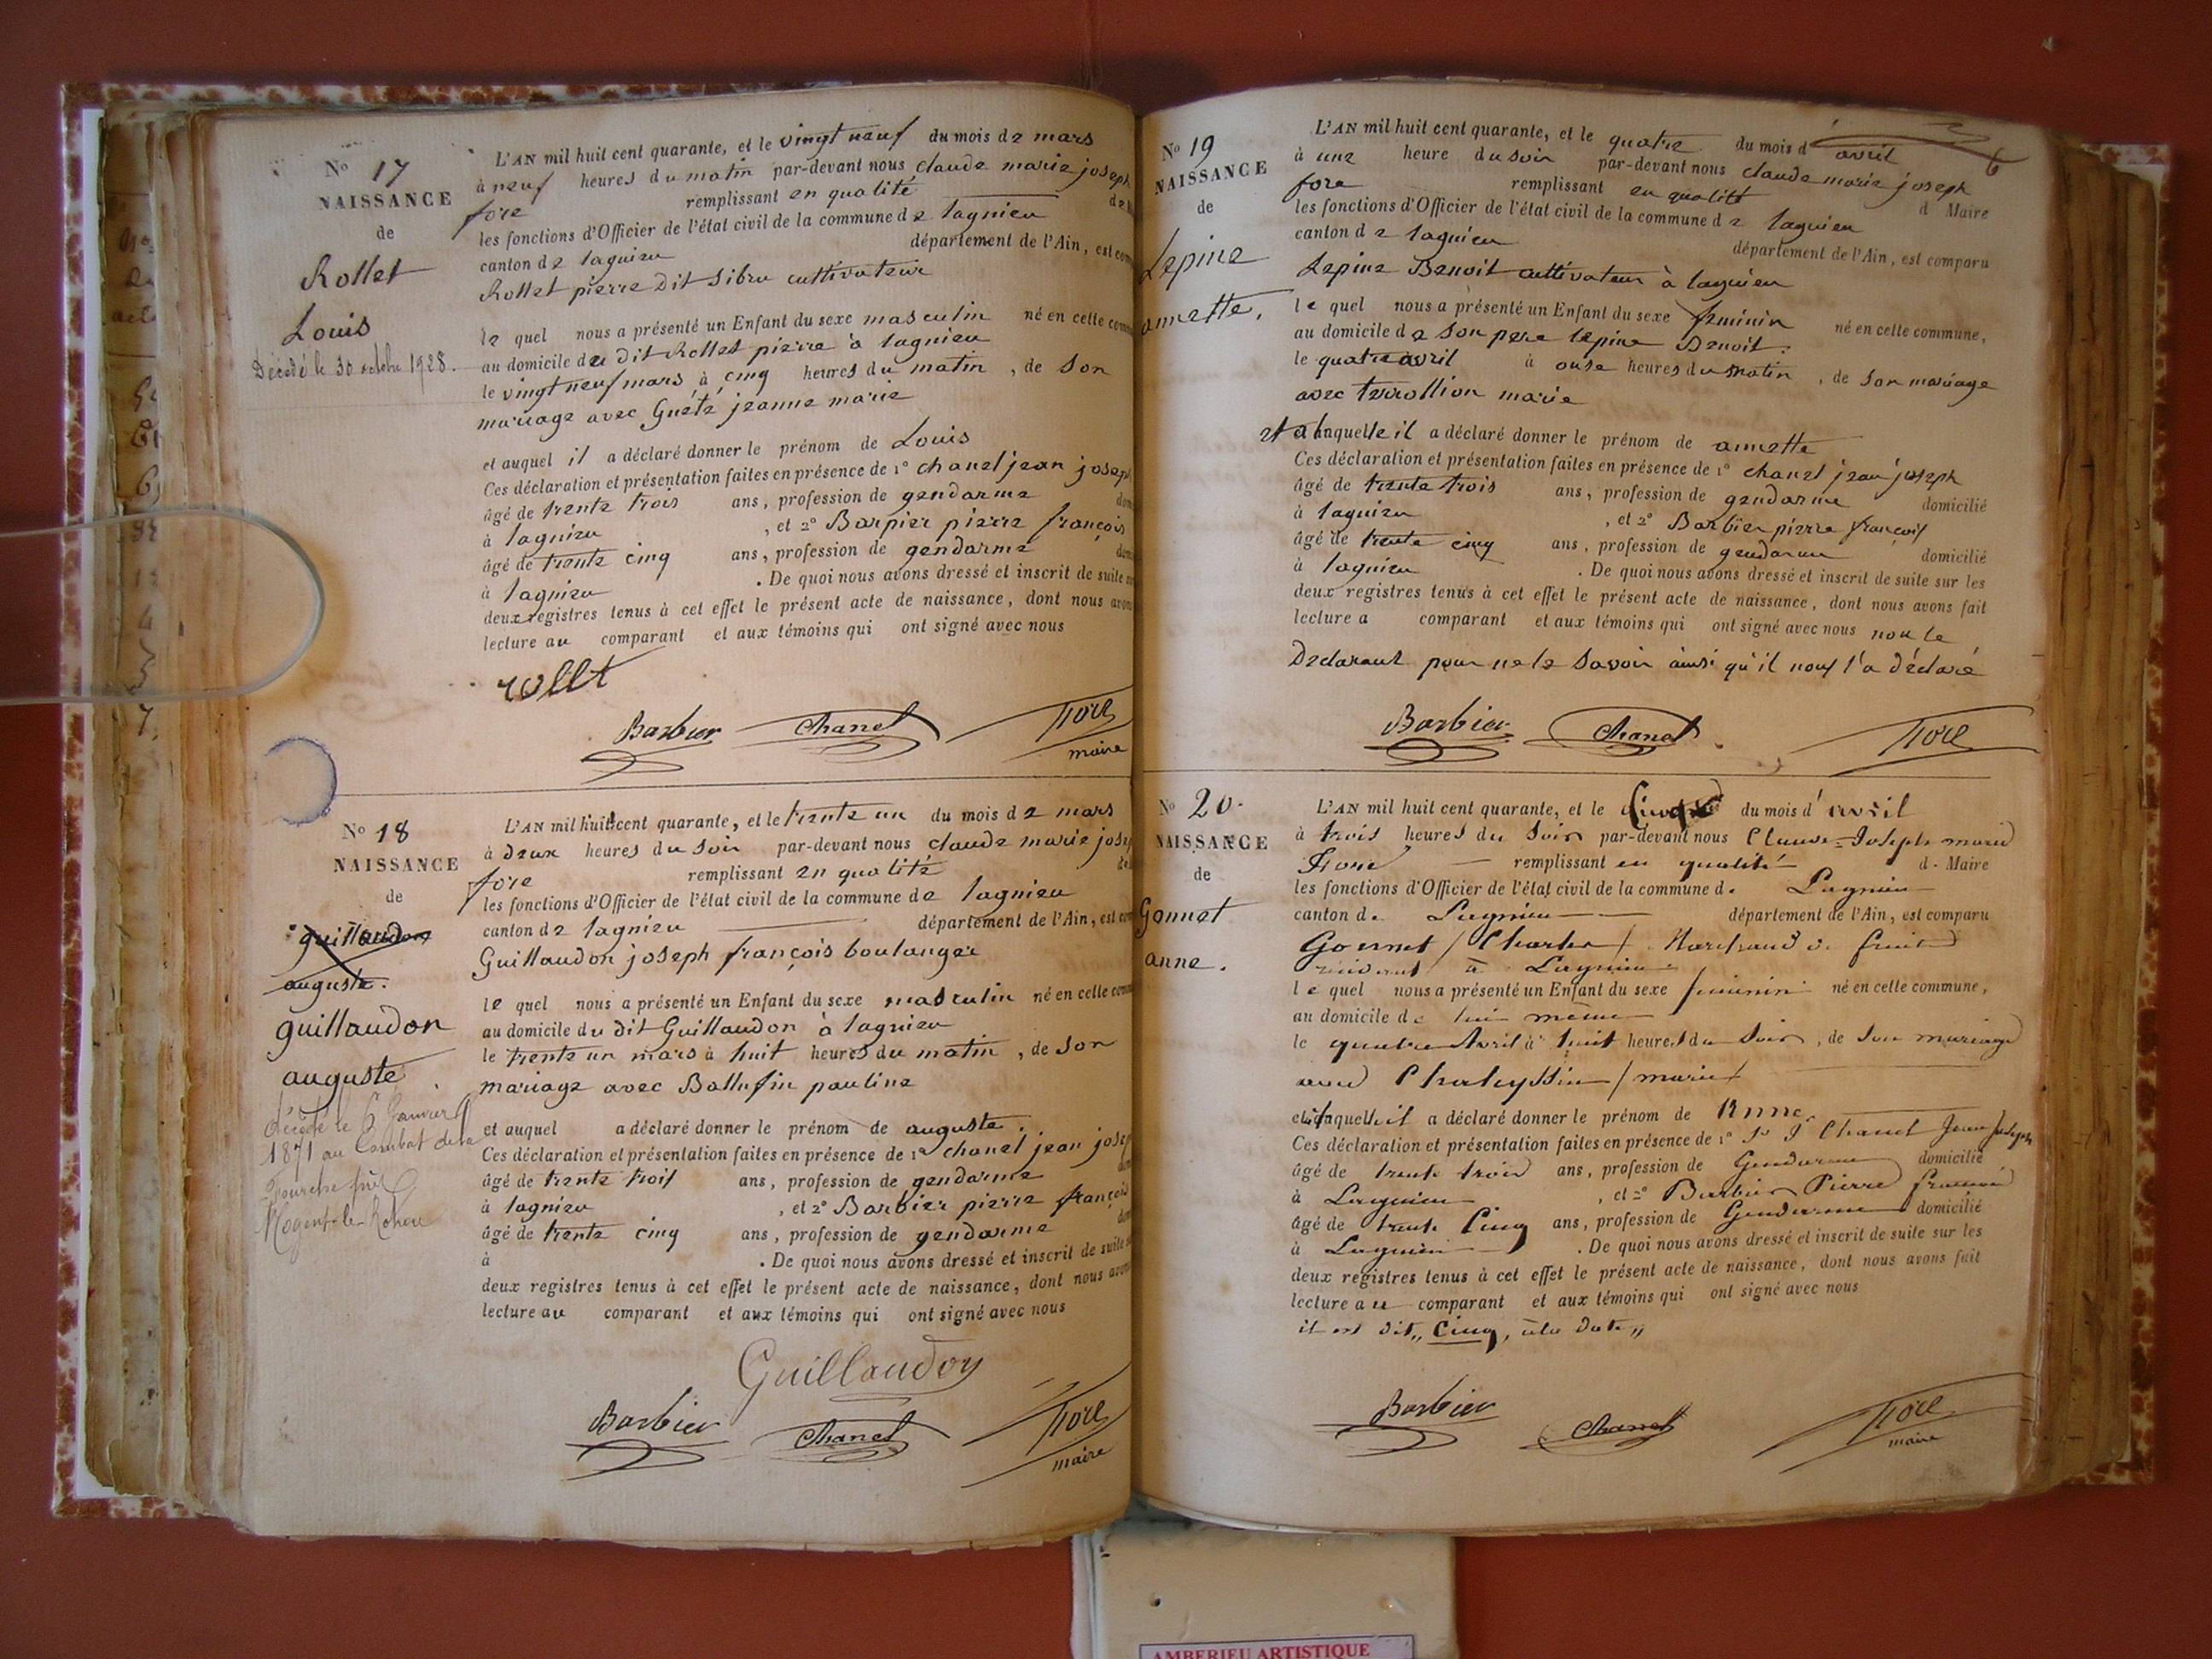 No 17
NAISSANCE
de
Rollet
Louis
Décédé le 30 octobre 1928.
L'AN mil huit cent quarante, et le vingt neuf du mois de mars
à neuf heures du matin par-devant nous claude marie joseph
fore remplissant en qualité de
les fonctions d'Officier de l'état civil de la commune de lagnieu
canton de lagnieu département de l'Ain, est com
Rollet pierre dit Sibru cultivateur
le quel nous a présenté un Enfant du sexe masculin né en cette com
au domicile du dit Rollet pierre à lagnieu
le vingt neuf mars à cinq heures du matin, de son
mariage avec Guété jeanne marie
et auquel il a déclaré donner le prénom de Louis
Ces déclaration et présentation faites en présence de 1° chanel jean joseph
âgé de trente trois ans, profession de gendarme dom
à lagnieu, et 2° Barpier pierre françois
âgé de trente cinq ans, profession de gendarme dom
à lagnieu. De quoi nous avons dressé et inscrit de suite
deux registres tenus à cet effet le présent acte de naissance, dont nous avons
lecture au comparant et aux témoins qui ont signé avec nous
rollet
Barbier Chanel Fore
maire
No 18
NAISSANCE
de
guillaudon
auguste.
guillaudon
auguste
décédé le 6 Janvier
1871 au Combat de la
Fourche près
Nogent-le-Rotrou
L'AN mil huit cent quarante, et le trente un du mois de mars
à deux heures du soir par-devant nous claude marie josep
fore remplissant en qualité de
les fonctions d'Officier de l'état civil de la commune de lagnieu
canton de lagnieu département de l'Ain, est com
Guillaudon joseph françois boulanger
le quel nous a présenté un Enfant du sexe masculin né en cette com
au domicile du dit Guillaudon à lagnieu
le trente un mars à huit heures du matin, de son
mariage avec Ballufin pauline
et auquel a déclaré donner le prénom de auguste.
Ces déclaration et présentation faites en présence de 1° chanel jean josep
âgé de trente trois ans, profession de gendarme dom
à lagnieu, et 2° Barbier pierre françois
âgé de trente cinq ans, profession de gendarme dom
à . De quoi nous avons dressé et inscrit de suite
deux registres tenus à cet effet le présent acte de naissance, dont nous avons
lecture au comparant et aux témoins qui ont signé avec nous
Guillaudon
Barbier Chanel Fore
maire
6
No 19
NAISSANCE
de
Lepine
annette.
L'AN mil huit cent quarante, et le quatre du mois d avril
à une heure du soir par-devant nous claude marie joseph
fore remplissant en qualité d Maire
les fonctions d'Officier de l'état civil de la commune de lagnieu
canton de lagnieu département de l'Ain, est comparu
Lepine Benoit cultivateur à lagnieu
le quel nous a présenté un Enfant du sexe feminin né en cette commune,
au domicile de son pere lepine Benoit.
le quatre avril à onse heures du matin, de son mariage
avec terrollion marie
et a laquelle il a déclaré donner le prénom de annette
Ces déclaration et présentation faites en présence de 1° chanel jean joseph
âgé de trente trois ans, profession de gendarme domicilié
à lagnieu, et 2° Barbier pierre françois
âgé de trente cinq ans, profession de gendarme domicilié
à lagnieu. De quoi nous avons dressé et inscrit de suite sur les
deux registres tenus à cet effet le présent acte de naissance, dont nous avons fait
lecture a comparant et aux témoins qui ont signé avec nous non le
Declarant pour ne le savoir ainsi qu'il nous l'a déclaré
Barbier Chanel Fore
No 20.
NAISSANCE
de
Gonnet
anne.
L'AN mil huit cent quarante, et le Cinq du mois d'avril
à trois heures du soir par-devant nous Claude-Joseph marie
Fore remplissant en qualité d. Maire
les fonctions d'Officier de l'état civil de la commune d. Lagnieu
canton d. Lagnieu département de l'Ain, est comparu
Gonnet / Charles / Marchand de
résident à Lagnieu
le quel nous a présenté un Enfant du sexe feminin né en cette commune,
au domicile de lui même
le quatre Avril à huit heures du Soir, de son mariage
avec / marie /
et à laquelle il a déclaré donner le prénom de Anne
Ces déclaration et présentation faites en présence de 1° Chanel Jean Joseph
âgé de trente trois ans, profession de Gendarme domicilié
à Lagnieu, et 2° Barbier Pierre françois
âgé de trente Cinq ans, profession de Gendarme domicilié
à Lagnieu. De quoi nous avons dressé et inscrit de suite sur les
deux registres tenus à cet effet le présent acte de naissance, dont nous avons fait
lecture au comparant et aux témoins qui ont signé avec nous
il est dit,, Cinq, à la date,,
Barbier Chanel Fore
maire
AMBERIEU ARTISTIQUE